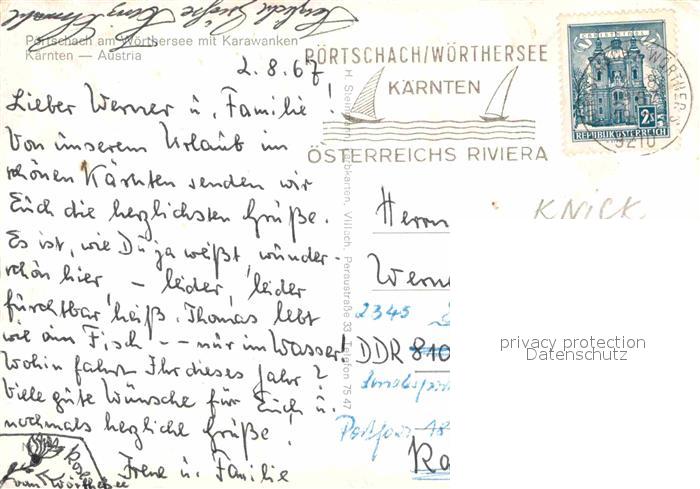 Herzliche Grüße
Pörtschach am Wörthersee mit Karawanken
Kärnten — Austria
2.8.67
Lieber Werner u. Familie!
Von unserem Urlaub im
schönen Kärnten senden wir
Euch die herzlichsten Grüße.
Es ist, wie Du ja weißt, wunder-
schön hier, – leider, leider
fürchtbar heiß. Thomas lebt
wie ein Fisch -- nur im Wasser!
Wohin fahrt Ihr dieses Jahr?
Viele gute Wünsche für Euch u.
nochmals herzliche Grüße!
Irene u. Familie
vom Wörthersee
Villach, Peraustraße 33, Telefon 75 47
PÖRTSCHACH/WÖRTHERSEE
KÄRNTEN
ÖSTERREICHS RIVIERA
CHRISTKINDL
2S
REPUBLIK ÖSTERREICH
9210
KNICK
Herrn
Wern
2345
DDR 810
Postfach 18
Ra
privacy protection
Datenschutz